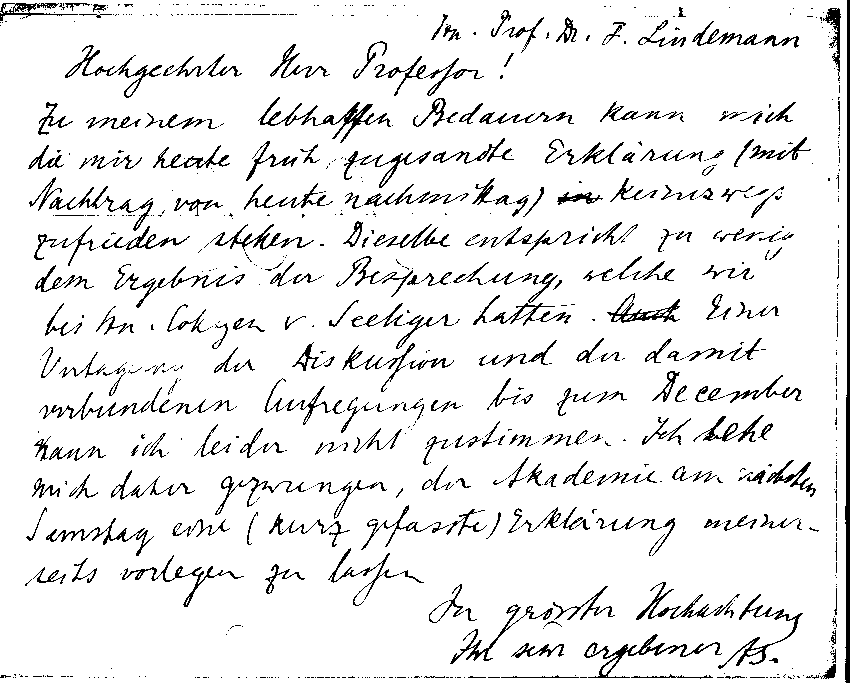 Hn. Prof. Dr. F. Lindemann
Hochgeehrter Herr Professor!
Zu meinem lebhaften Bedauern kann mich
die mir heute früh zugesandte Erklärung (mit
Nachtrag von heute nachmittag) in keineswegs
zufrieden stellen. Dieselbe entspricht zu wenig
dem Ergebnis der Besprechung, welche wir
bei Hn. Collegen v. Seeliger hatten. Auch Einer
Vertagung der Diskussion und der damit
verbundenen Aufregungen bis zum December
kann ich leider nicht zustimmen. Ich sehe
mich daher gezwungen, der Akademie am nächsten
Samstag eine (kurz gefasste) Erklärung meiner-
seits vorlegen zu lassen
In grösster Hochachtung
Ihr sehr ergebener AS.